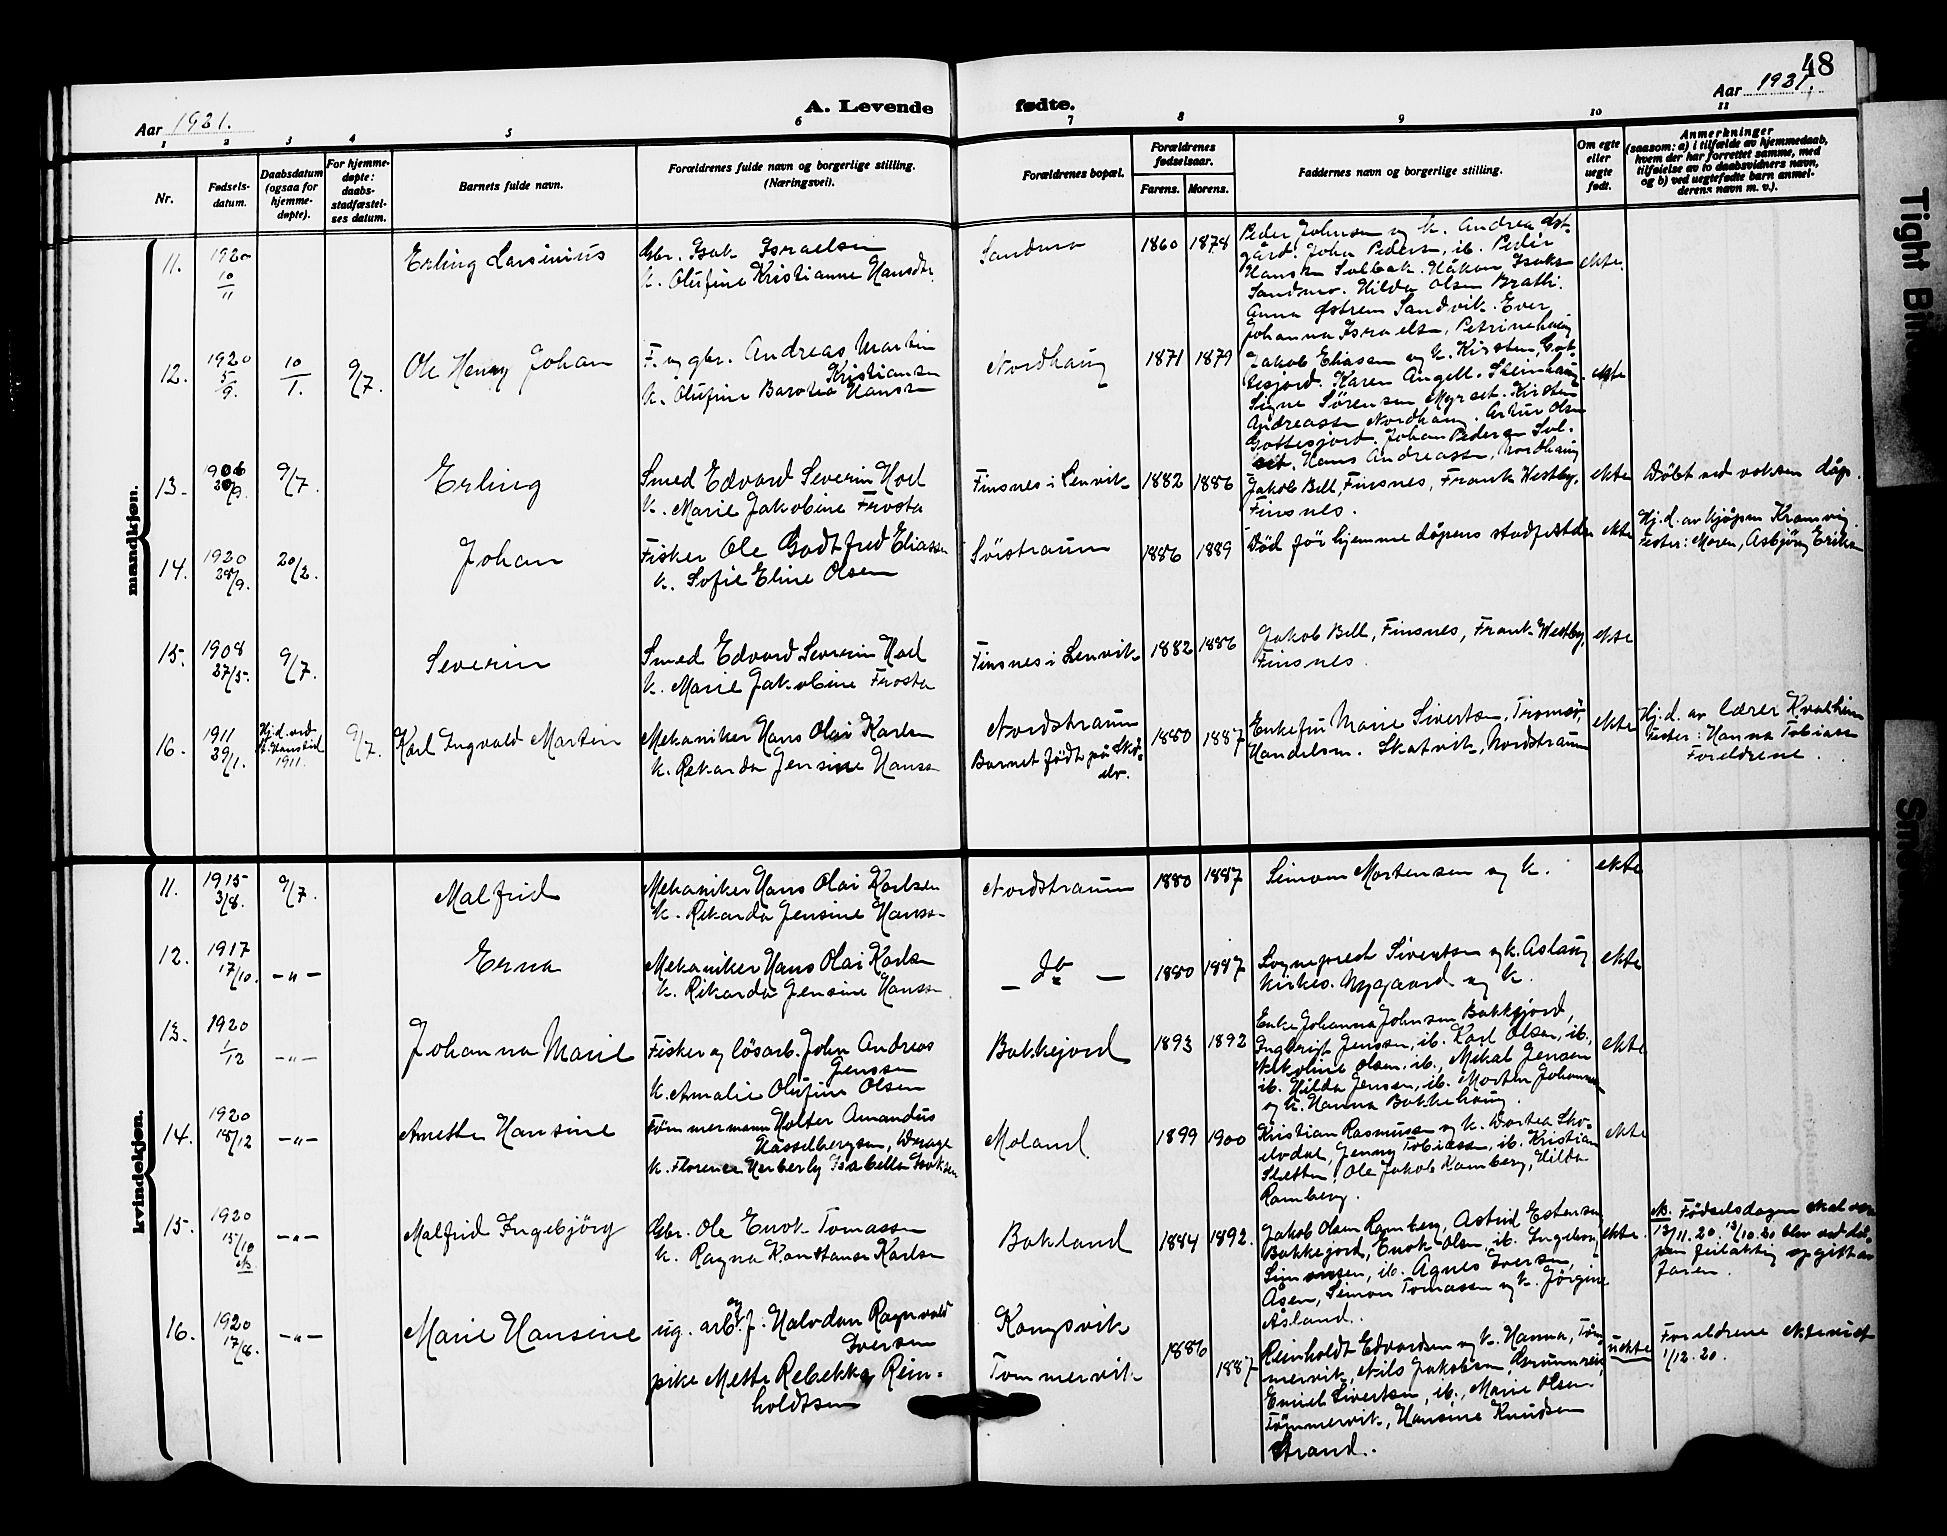 48
Aar 1921.
A. Levende fødte.
Aar 1921.
1 2 3 4 5 6 7 8 9 10 11
Nr.
Fødsels-
datum.
Daabsdatum
(ogsaa for
hjemme-
døpte).
For hjemme-
døpte:
daabs-
stadfæstel-
ses datum.
Barnets fulde navn.
Forældrenes fulde navn og borgerlige stilling.
(Næringsvei).
Forældrenes bopæl.
Forældrenes
fødselsaar.
Farens. Morens.
Faddernes navn og borgerlige stilling.
Om egte
eller
uegte
født.
Anmerkninger
(saasom: a) i tilfælde av hjemmedaab,
hvem der har forrettet samme, med
tilføielse av to daabsvidners navn,
og b) ved uegtefødte barn anmel-
derens navn m. v.).
mandkjøn.
11.
1920
10/11
Erling Larsinius
Gbr. Isak Israelsen
k. Olufine Kristianne Hansdtr.
Sandmo
1860 1878
Peder Johnsen og k. Andrea Øst-
gård. Johan Peders, ib. Peder
Hansen Solbak. Håkon Isaks
Sandmo. Hilda Olsen Brath.
Anna Østrem Sandvik. Ever
Johanna Israels, Petrine haug
ekte.
12.
1920
5/9.
10/1.
9/7.
Ole Henry Johan
F. og gbr. Andreas Martin
Kristiansen
k. Olufine Barotea Hansen
Nordhaug
1871 1879
Jakob Eliassen og k. Kirsten, Got-
tesjord. Karen Angell. Steinhaug.
Signe Sørensen Myrset. Kirsten
Andreassen Nordhaug. Artur Olsen
Gottesjord. Johan Pedersen Sol-
set. Hans Andreassen, Nordhaug
ekte
13.
1906
20/9.
9/7.
Erling
Smed Edvard Severin Hoel
k. Marie Jakobine Frosta
Finsnes i Lenvik
1882 1886
Jakob Bell, Finsnes, Frank Westby,
Finsnes.
ekte
Døbt ved voksen dåp.
14.
1920
28/9.
20/2.
Johan
Fisker Ole Godtfred Eliassen
k. Sofie Eline Olsen
Sørstraum
1886 1889
Død før hjemme dåpens stadfestelse
ekte
Hj.d. av kjøpm Kramvig.
Fester: Moren, Asbjørg Eriksen
15.
1908
27/5.
9/7.
Severin
Smed Edvard Severin Hoel
k. Marie Jakobine Frosta
Finsnes i Lenvik
1882 1886
Jakob Bell, Finsnes, Frank Westby,
Finsnes.
ekte
16.
1911
29/1.
Hj.d. ved
St. Hanstid
1911.
9/7.
Karl Ingvald Martin
Mekaniker Hans Olai Karlsen
k. Rikarda Jensine Hanss.
Nordstraum
Barnet født på Skø-
elv.
1880 1887
Enkefru Marie Sivertsen, Tromsø,
Handelsm. Skatvik, Nordstraum
ekte
Hj.d. av lærer Kvalheim
Fester: Hanna Tobiass
Foreldrene.
kvindekjøn.
11.
1915
3/8.
9/7.
Malfrid
Mekaniker Hans Olai Karlsen
k. Rikarda Jensine Hanss.
Nordstraum
1880 1887
Simon Mortensen og k.
ekte
12.
1917
17/10.
—„—
Erna
Mekaniker Hans Olai Karlsen
k. Rikarda Jensine Hanss.
— do —
1880 1887
Sogneprest Sivertsen og k. Aslaug
kirkes. Nygaard og k.
ekte
13.
1920
1/12
—„—
Johanna Marie
Fisker og løsarb. John Andreas
Jenssen
k. Amalie Olufine Olsen
Bakkejord
1893 1892
Enke Johanna Johnsen Bakkejord,
Ingebrigt Jenssen, ib. Karl Olsen, ib.,
Nikoline Olsen, ib., Mikal Jensen
ib. Hilda Jenssen, ib. Morten Johannes
og k. Hanna Bakkehaug.
ekte
14.
1920
18/12
—„—
Anetta Hansine
Tømmermann Holter Amandus
Hasselbergsen,
k. Florence Herberly Isabella Isaksen
Moland
1899 1900
Kristian Rasmussen og k. Dortea Skø-
elvdal, Jenny Tobiassen, ib. Kristian
Sletten. Ole Jakob Ramberg, Hilda
Ramberg.
ekte
15.
1920
15/10
—„—
Malfrid Ingebjørg
Gbr. Ole Enok Tomassen
k. Ragna Konstanse Karlsen
Bakland
1884 1892.
Jakob Olsen Ramberg, Astrid Estensen
Bakkejord, Enok Olsen ib. Ingeborg
Simonsen, ib. Agnes Iversen,
Åsen, Simon Tomassen og k. Jørgine
Åsland.
ekte.
NB. Fødselsdagen skal være
13/11.20. 13/10.20 blev ved då-
pen feilaktig opgitt av
faren.
16.
1920
17/8.
—„—
Marie Hansine
ug. arb. og f. Halvdan Ragnvald
Iversen
pike Mette Rebekka Rein-
holdtsen
Kongsvik
Tommervik
1886
1887
Reinholdt Edvardsen og k. Hanna, Tøm-
mervik, Nils Jakobsen, Grunnreis,
Emil Sivertsen, ib., Marie Olsen
Tømmervik, Hansine Knudsen
Strand.
uekte
Foreldrene ektevict
1/12.20.
Tight Bin